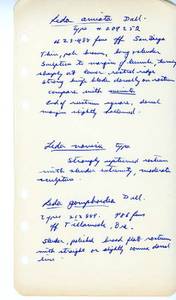 Leda amiata Dall.
Type # 209252
# 23-488 fms off San Diego
Thin, pale brown, long & slender
Sculpture to margin of lunule, turning
sharply at lower rostral ridge
Strong high blade dorsally on rostrum
compare with
End of rostrum square, dorsal
margin slightly
Leda navisa Type
Strongly upturned rostrum
with slender extremity, moderate
sculpture.
Leda gomphoidea Dall
2 types 212889. 786 fms
off Tillamook, Ore
Slender, polished broad flat rostrum
with straight or slightly convex dorsal
line.